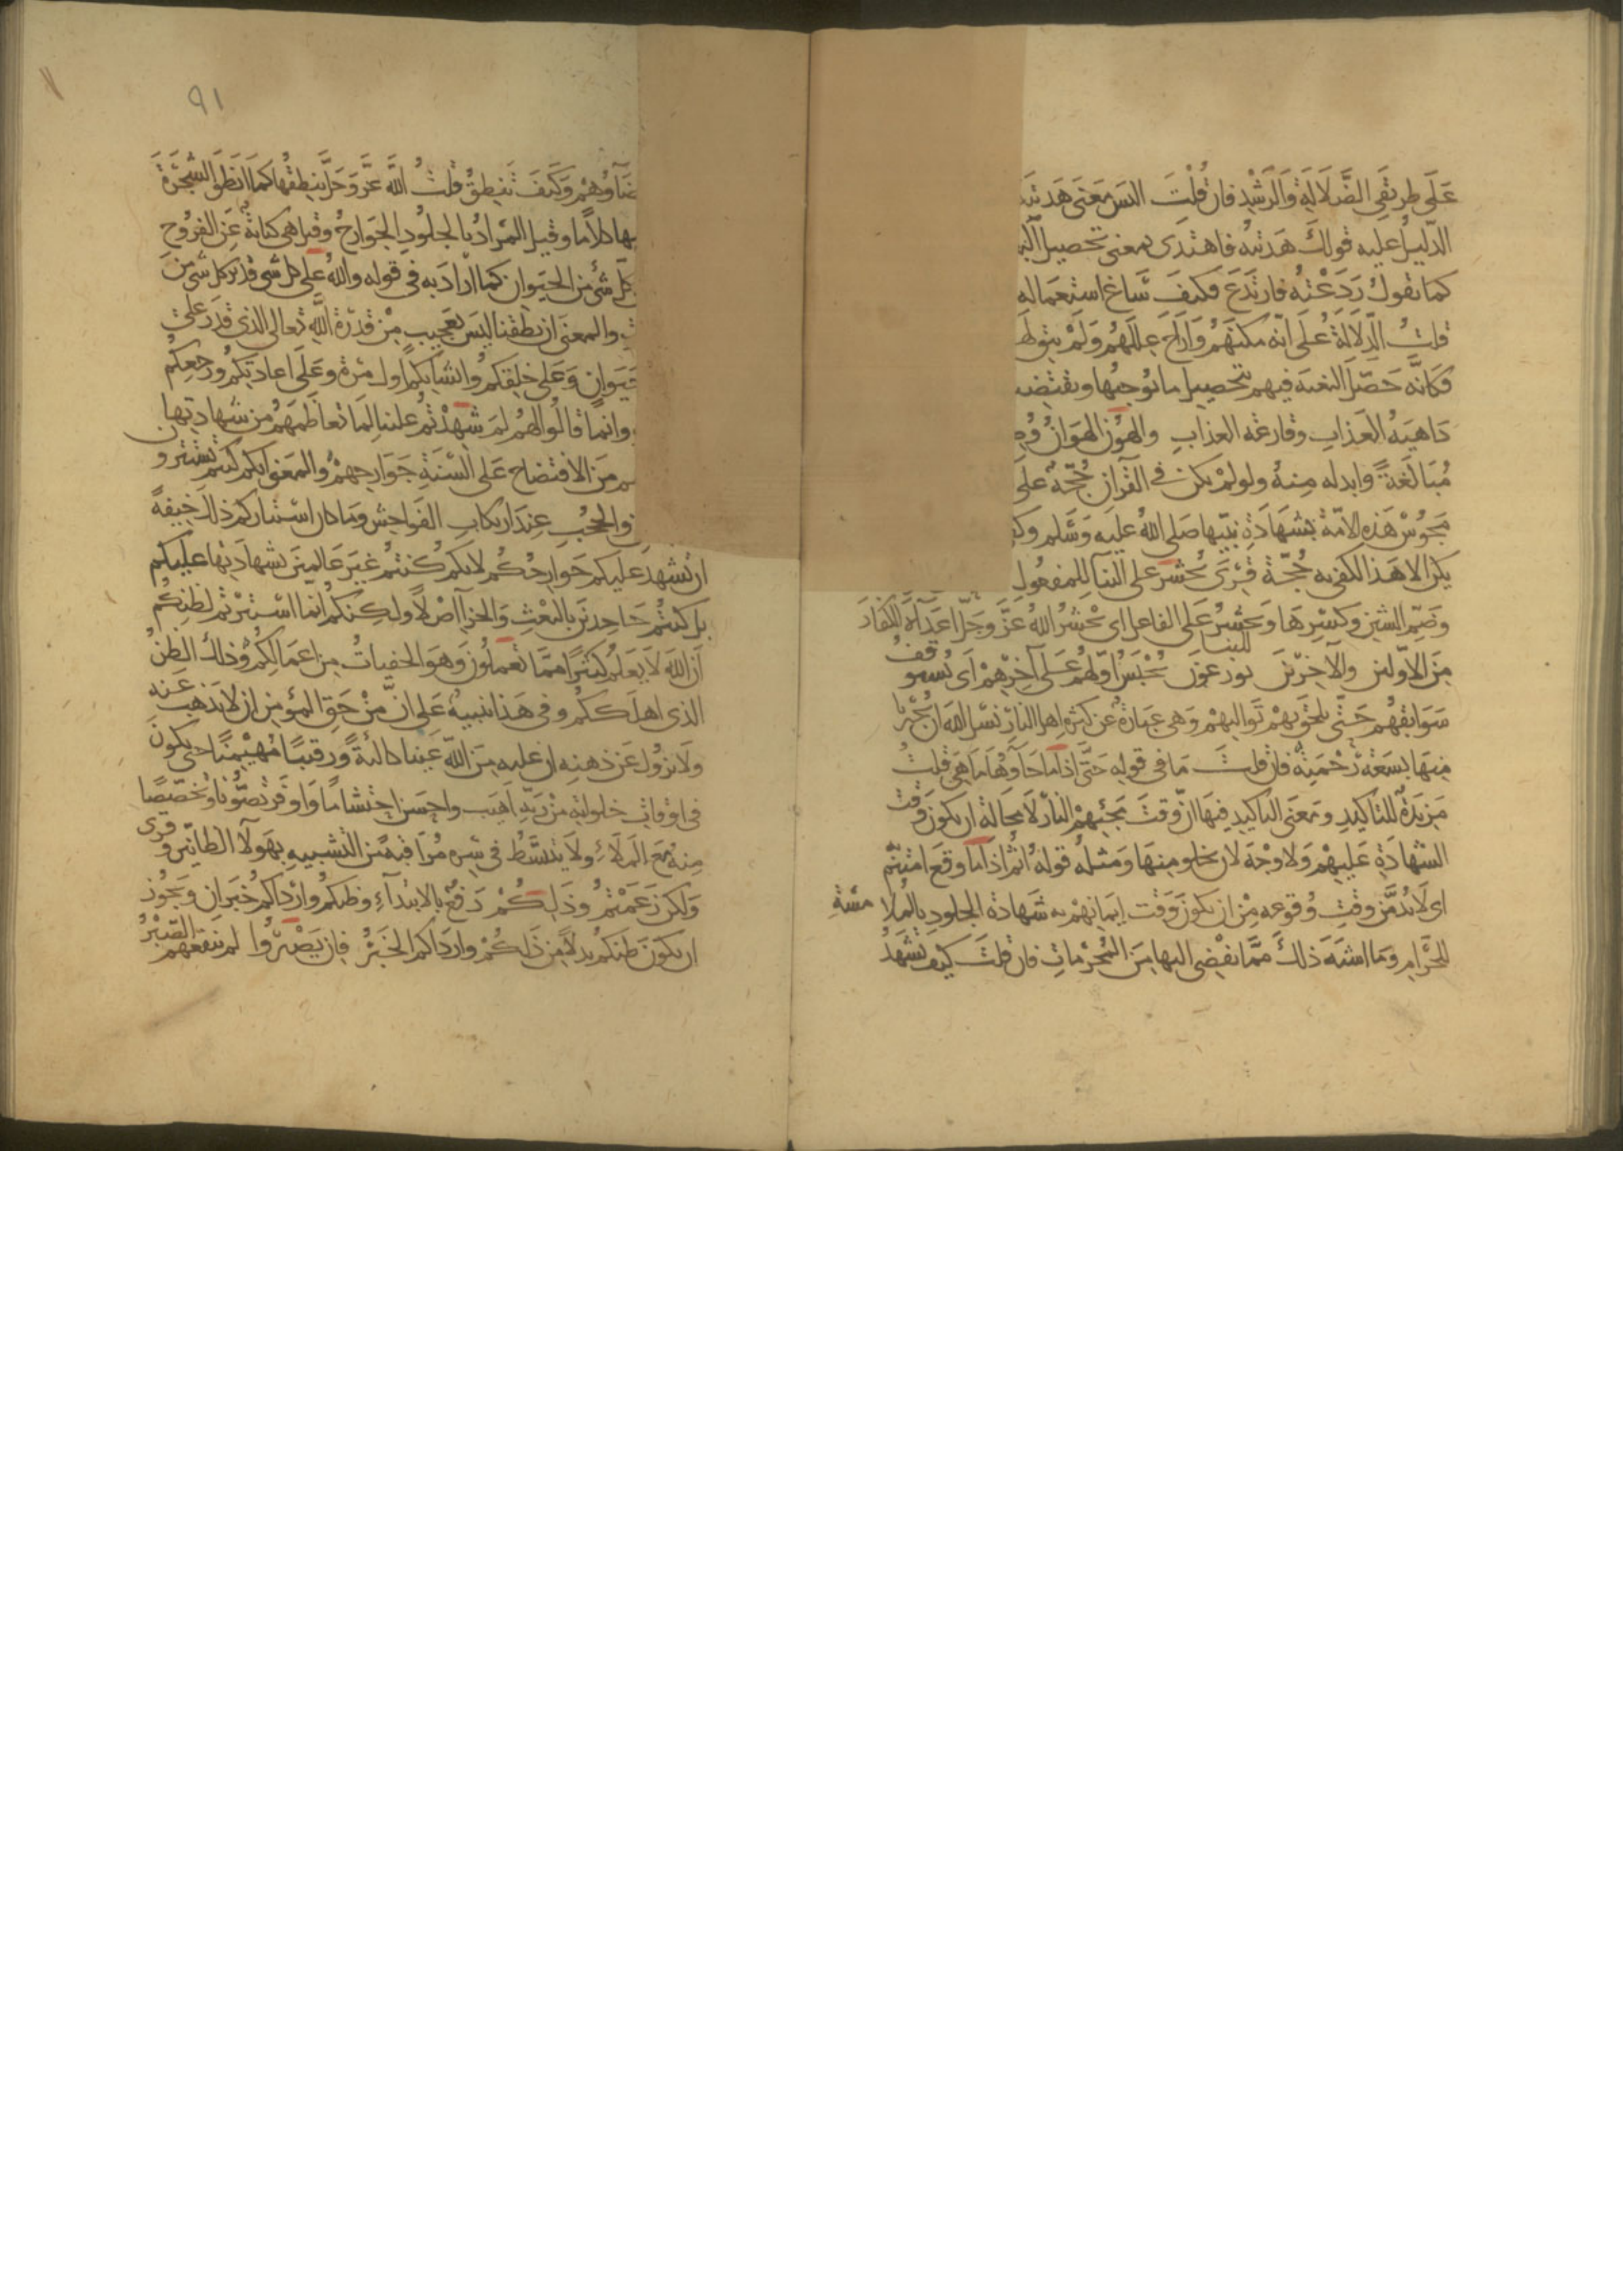 على طريقي الضلالة والرشد فان قلت اليس معنى هديته
الدليل عليه قولك هديته فاهتدى بمعنى تحصيل
كما تقول ردعته فارتدع فكيف ساغ استعماله
قلت الدلالة على انه مكنهم وازاح عللهم ولم يبق
فكانه حصل البغية فيهم بتحصيل ما يوجبها ويقتضيه
داهية العذاب وقارعة العذاب والهون الهوان
مبالغة وابدله منه ولو لم يكن في القرآن حجة على
مجوس هذه الامة بشهادة نبيها صلى الله عليه وسلم وكفى
يكن الا هذا لكفى به حجة قرئ يحشر على البناء للمفعول
وضم الشين وكسرها ويحشر على البناء للفاعل اى يحشر الله عز وجل اعداء الكفار
من الاولين والآخرين يوزعون يحبس اولهم على آخرهم اى يستوقف
سوابقهم حتى يلحق بهم تواليهم وهى عبارة عن كثرة اهل النار نسل الله ان يجيرنا
منها بسعة رحمته فان قلت ما فى قوله حتى اذا ما جاوها ما هى قلت
مزيدة للتاكيد ومعنى التاكيد فيها ان وقت مجيئهم النار لا محالة ان يكون وقت
الشهادة عليهم ولا وجه لان يخلو منها ومثله قوله اثم اذا ما وقع امنتم
اى لا بد من وقت وقوعه من ان يكون وقت ايمانهم به شهادة الجلود بالملامسة
للحرام وما اشبه ذلك مما يفضى اليها من المحرمات فان قلت كيف تشهد
٩١
ضاوهم وكيف تنطق قلت الله عز وجل ينطقها كما انطق الشجرة
بها كلاما وقيل المراد بالجلود الجوارح وقيل هى كناية عن الفروج
كل شئ من الحيوان كما اراد به فى قوله والله على كل شى قدير كل شى من
والمعنى ان نطقنا ليس بعجيب من قدرة الله تعالى الذى قدر على
حيوان وعلى خلقكم وانشائكم اول مرة وعلى اعادتكم ورجعكم
وانما قالوا لهم لم شهدتم علينا لما تعاظمهم من شهادتها
هم من الافتضاح على السنة جوارحهم والمعنى انكم كنتم تستترون
والحجب عند ارتكاب الفواحش وما كان استتاركم ذلك خيفة
ان تشهد عليكم جوارحكم لانكم كنتم غير عالمين بشهادتها عليكم
بل كنتم جاحدين بالبعث والجزآ اصلا ولكنكم انما استترتم لظنكم
ان الله لا يعلم كثيرا مما تعملون وهو الخفيات من اعمالكم وذلك الظن
الذى اهلككم وفى هذا تنبيه على ان من حق المؤمن ان لا يذهب عنه
ولا يزول عن ذهنه ان عليه من الله عينا كالئة ورقيبا مهيمنا حتى يكون
فى اوقات خلواته من ربه اهيب واحسن احتشاما واوفر تصونا وتخصيصا
منه مع الملاء ولا يتبسط فى سره مراقبة من التشبيه بهولآ الظانين وقرى
ولكن زعمتم وذلكم رفع بالابتدآء وظنكم وارداكم خبران ويجوز
ان يكون ظنكم بدلا من ذلكم وارداكم الخبر فان يصبروا لم ينفعهم الصبر